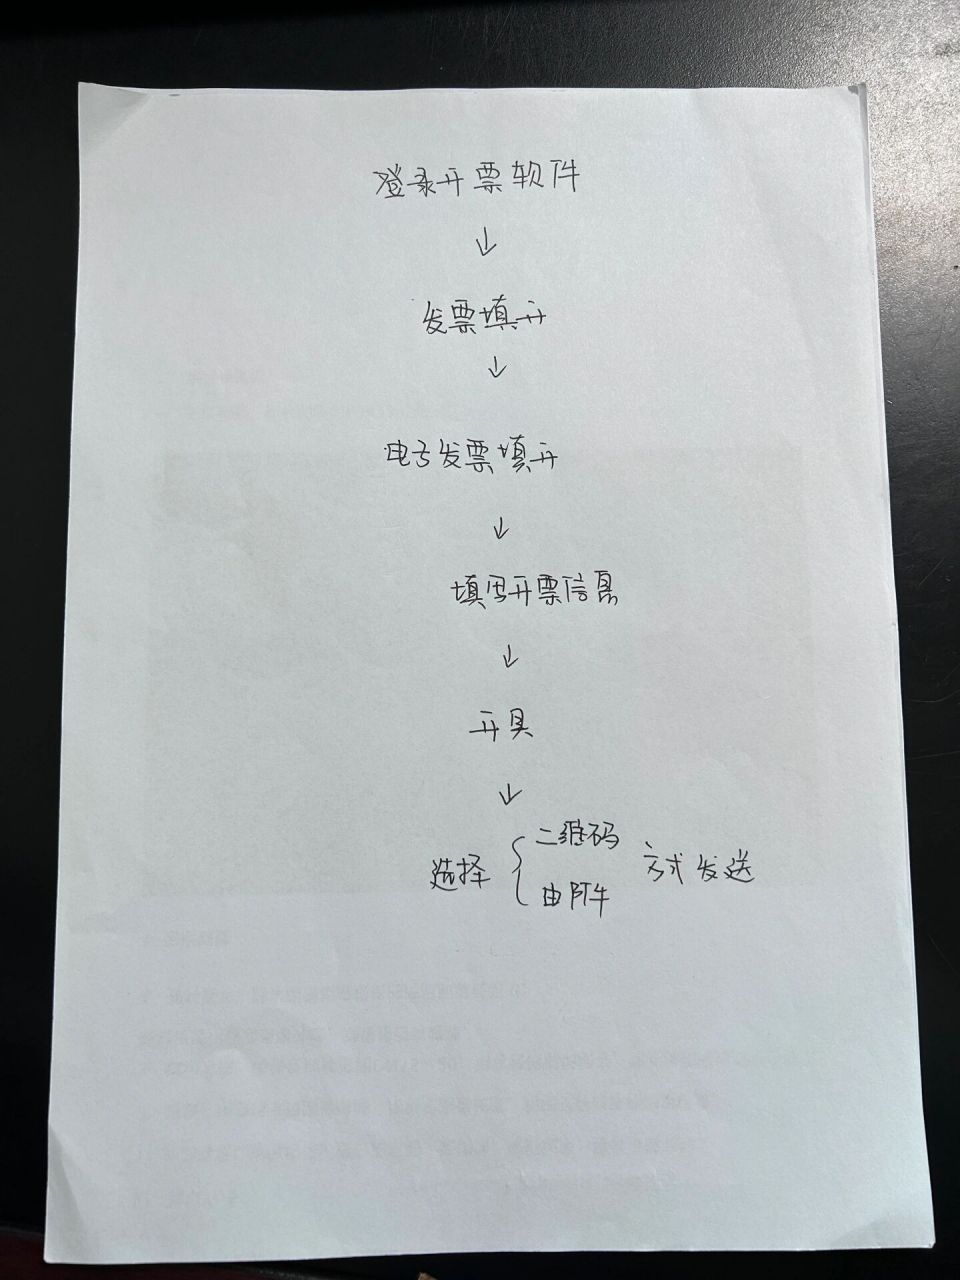 登录开票软件
↓
发票填开
↓
电子发票填开
↓
填写开票信息
↓
开具
↓
选择 { 二维码 方式发送
由阡